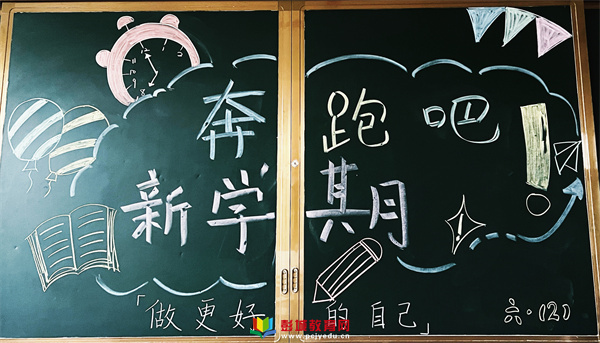 奔跑吧
新学期
「做更好的自己」
六·(12)
彭城教育网
www.pcjyedu.cn